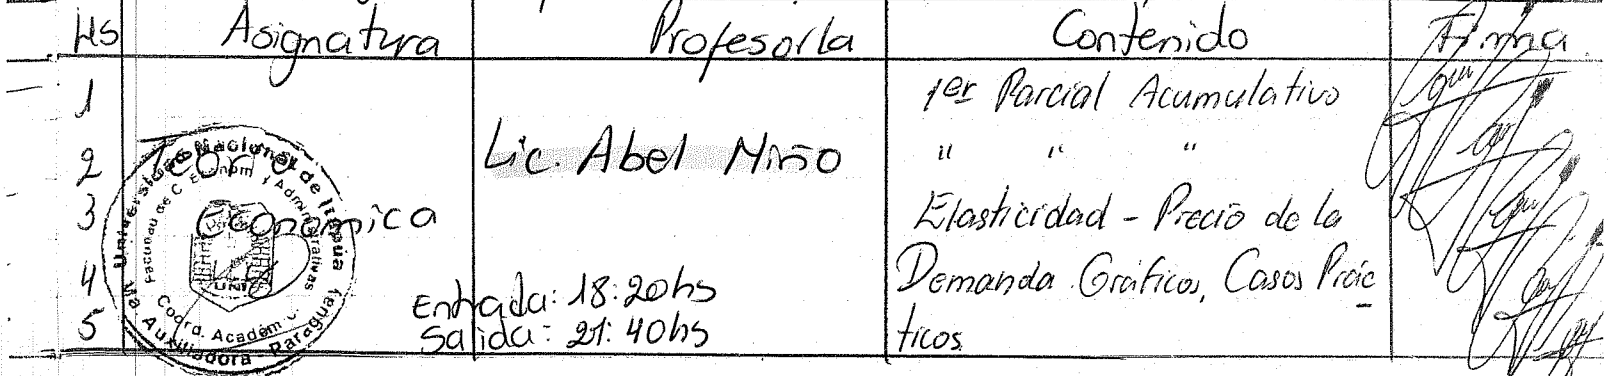 Hs Asignatura Profesor/a Contenido Firma
1 1er Parcial Acumulativo
2 Teoría Lic. Abel Niño " " "
3 Económica Elasticidad - Precio de la
4 Entrada: 18:20hs Demanda. Gráficos, Casos Prác
5 Salida: 21:40hs ticos.
Universidad Nacional de Itapúa
Facultad de C. Econom. y Administrativas
UNI
Coord. Académ
Ma. Auxiliadora - Paraguay